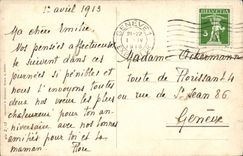 1er avril 1913
Ma chère Emilie
Nos pensées affectueuses
te suivent dans ces
journées si pénibles et
nous t'envoyons toutes
deux nos vœux les plus
chaleureux pour ton an-
niversaire avec nos bonnes
amitiés pour toi et ta
maman.
GENEVE 1
5
Madame Ackermann
route de Florissant 4
ou rue St Jean 86
Genève